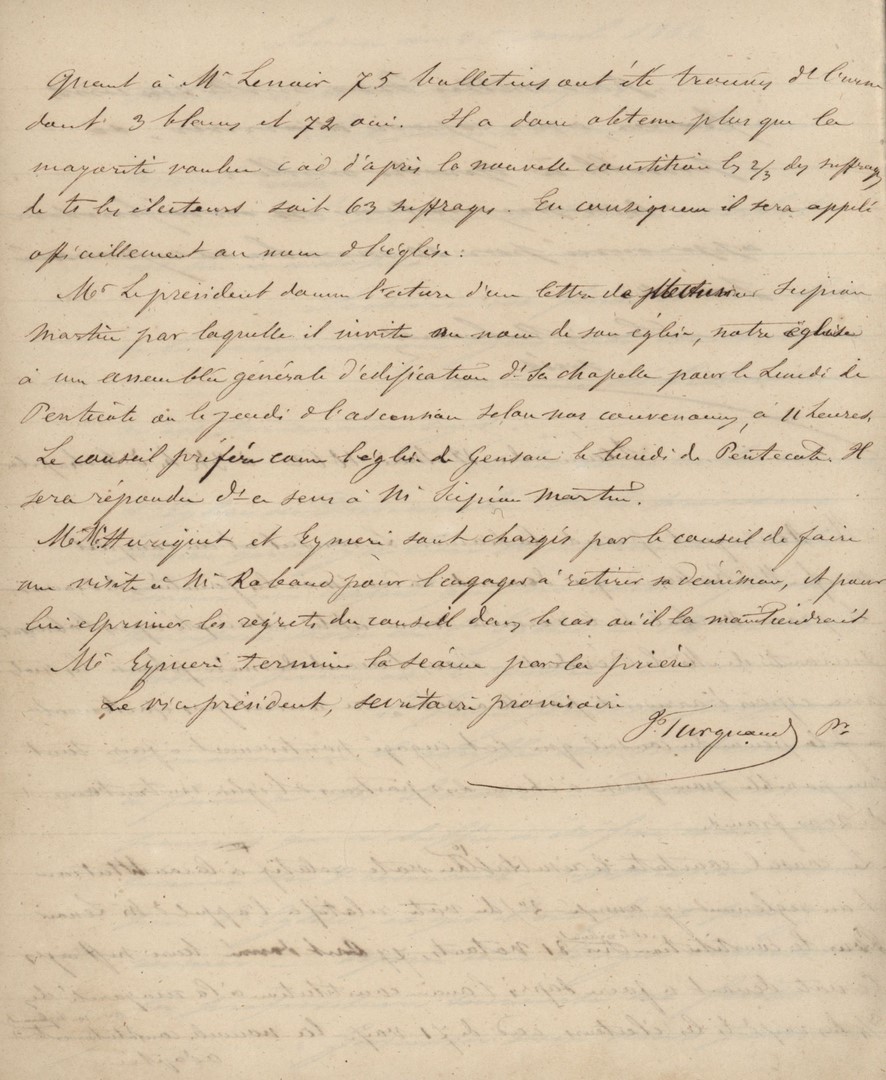 Quant à Mr Lenoir 75 bulletins ont été trouvés ds l'urne
dont 3 blancs et 72 oui. Il a donc obtenu plus que la
majorité voulue c a d d'après la nouvelle constitution les 2/3 des suffrages
de ts les électeurs soit 63 suffrages. En conséquence il sera appelé
officiellement au nom de l'église:
Mr Le président donne lecture d'une lettre de Monsieur Scipion
Martin par laquelle il invite au nom de son église, notre église
à une assemblée générale d'édification ds sa chapelle pour le Lundi de
Pentecôte ou le jeudi de l'ascension selon nos convenances, à 11 heures.
Le conseil préfère comme l'église de Gensac le lundi de Pentecôte. Il
sera répondu ds ce sens à Mr Scipion Martin.
MM. Huriguet et Eymeri sont chargés par le conseil de faire
une visite à Mr Rabaud pour l'engager à retirer sa démission, et pour
lui exprimer les regrets du conseil dans le cas où il la maintiendrait
Mr Eymeri termine la séance par la prière
Le vice président, secrétaire provisoire
Turquand Pr